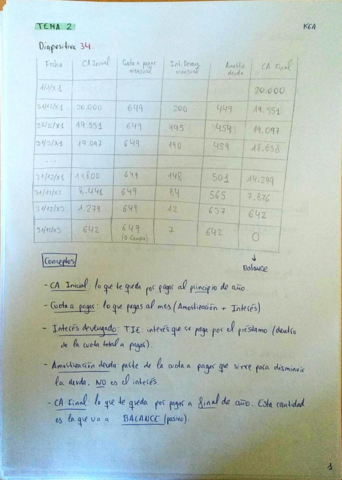 TEMA 2
KCA
Diapositiva 34.
Fecha CA Inicial Cuota a pagar Int. Deveng. Amortiz. deuda CA Final
20.000
31/01/X1 20.000 649 200 449 19.551
19.551 649 195 454 19.097
19.097 649 190 459 18.638
...
649 148 501 14.299
8.441 649 84 565 7.876
1.279 649 12 637 642
642 649 7 642 0
BALANCE
Conceptos
- CA Inicial: lo que te queda por pagar al principio de año.
- Cuota a pagar: lo que pagas al mes (Amortización + Interés)
- Interés devengado: TIE: interés que se paga por el préstamo (dentro
de la cuota total a pagar).
- Amortización deuda: parte de la cuota a pagar que sirve para disminuir
la deuda. NO es el interés.
- CA Final: lo que te queda por pagar a final de año. Esta cantidad
es la que va a BALANCE (pasivo).
1